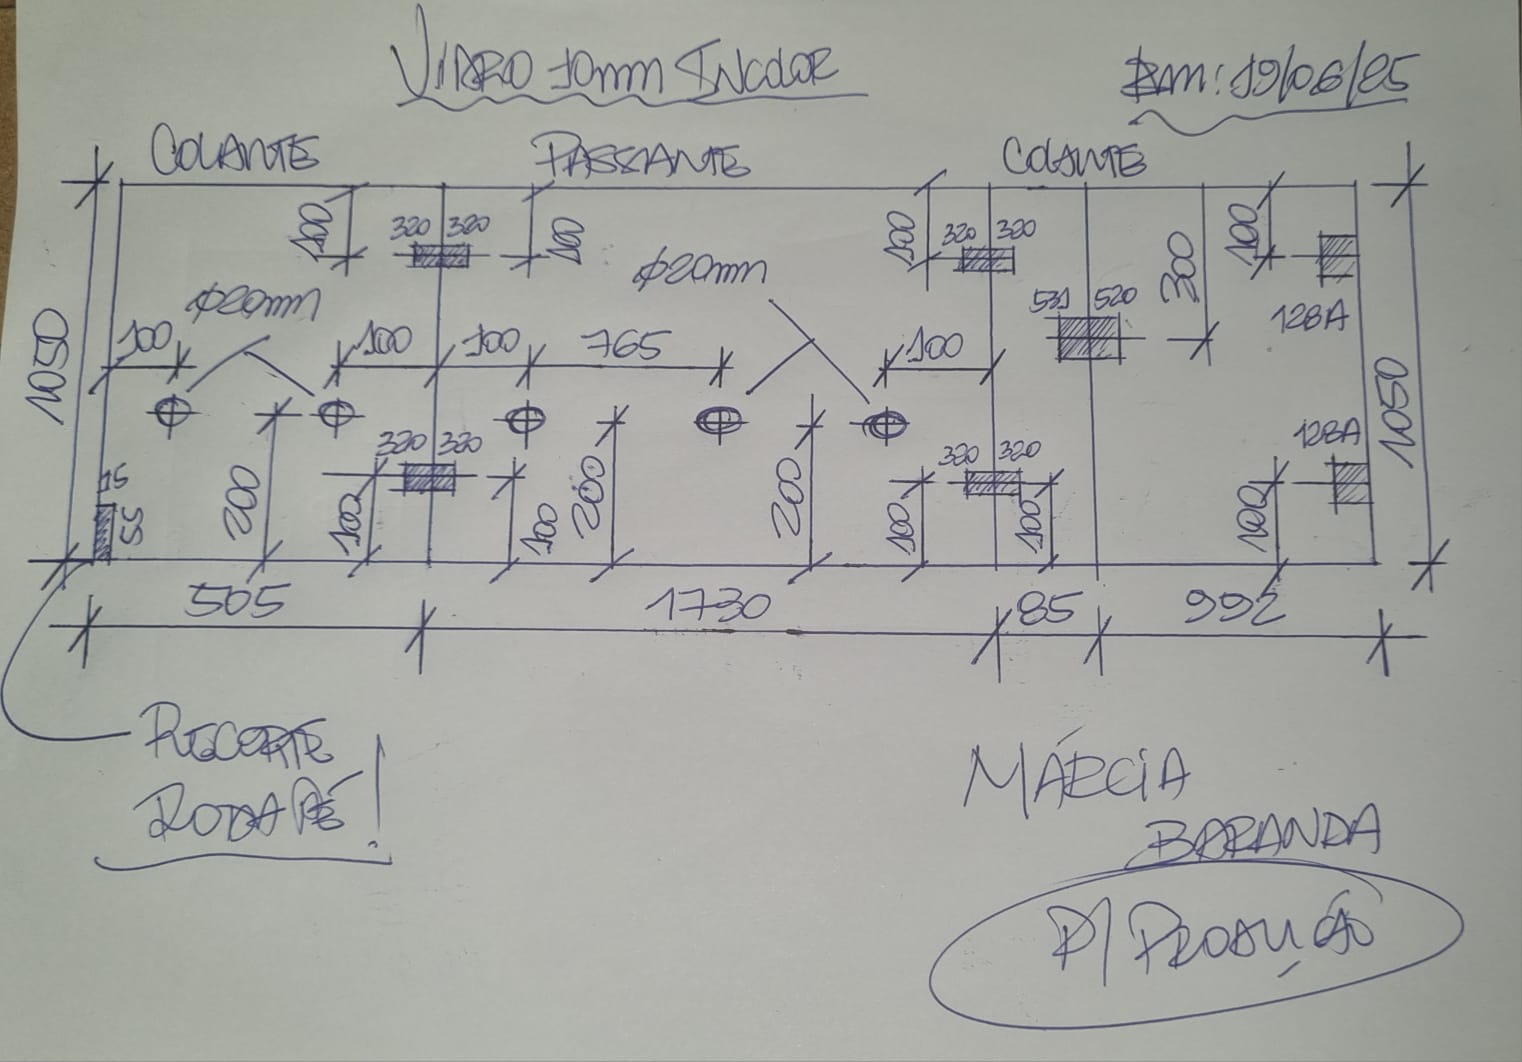 VIDRO 10mm INCOLOR
Em: 19/06/25
COLANTE PASSANTE COLANTE
100 320 320 100 100 320 320 300 100
Ø20mm Ø20mm
531 520
128A
1050 100 100 100 765 100 1050
320 320 320 320 128A
15
55
200 100 100 200 200 100 100 100
505 1730 85 992
RECORTE
RODAPÉ!
MÁRCIA
BARANDA
P/ PRODUÇÃO